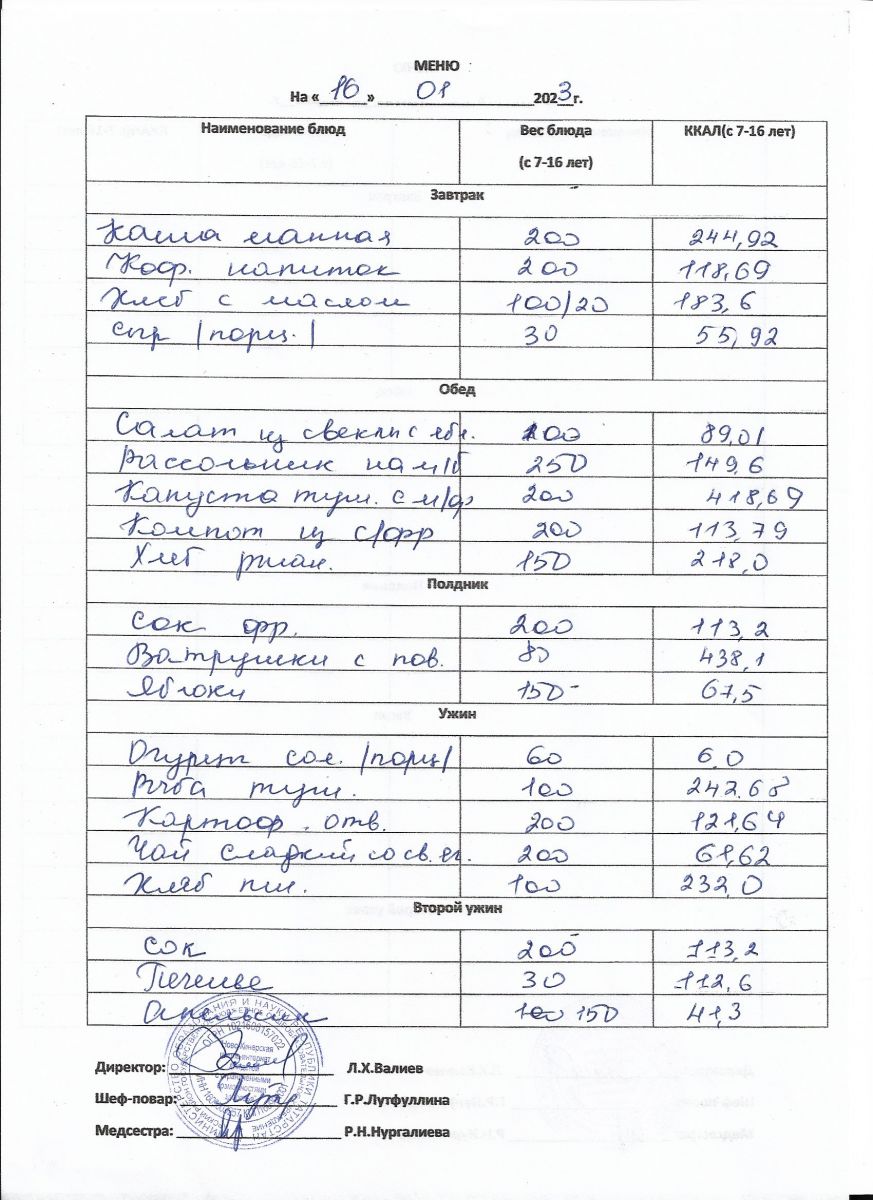 МЕНЮ
На « 16 » 01 2023 г.
Наименование блюд Вес блюда (с 7-16 лет) ККАЛ(с 7-16 лет)
Завтрак
Каша манная 200 244,92
Коф. напиток 200 118,69
Хлеб с маслом 100/20 183,6
Сыр /порц./ 30 55,92
Обед
Салат из свеклы с ябл. 100 89,01
Рассольник на м/б 250 149,6
Капуста туш. с м/ф 200 418,69
Компот из с/фр 200 113,79
Хлеб ржан. 150 218,0
Полдник
Сок фр. 200 113,2
Ватрушки с пов. 80 438,1
Яблоки 150 67,5
Ужин
Огурец сол. /порц/ 60 6.0
Рыба туш. 100 242.68
Картоф. отв. 200 121,64
Чай сладкий со св. яг. 200 61,62
Хлеб пш. 100 232,0
Второй ужин
Сок 200 113,2
Печенье 30 112,6
Апельсин 150 41,3
Директор: Л.Х.Валиев
Шеф-повар: Г.Р.Лутфуллина
Медсестра: Р.Н.Нургалиева
МИНИСТЕРСТВО ОБРАЗОВАНИЯ И НАУКИ РЕСПУБЛИКИ ТАТАРСТАН